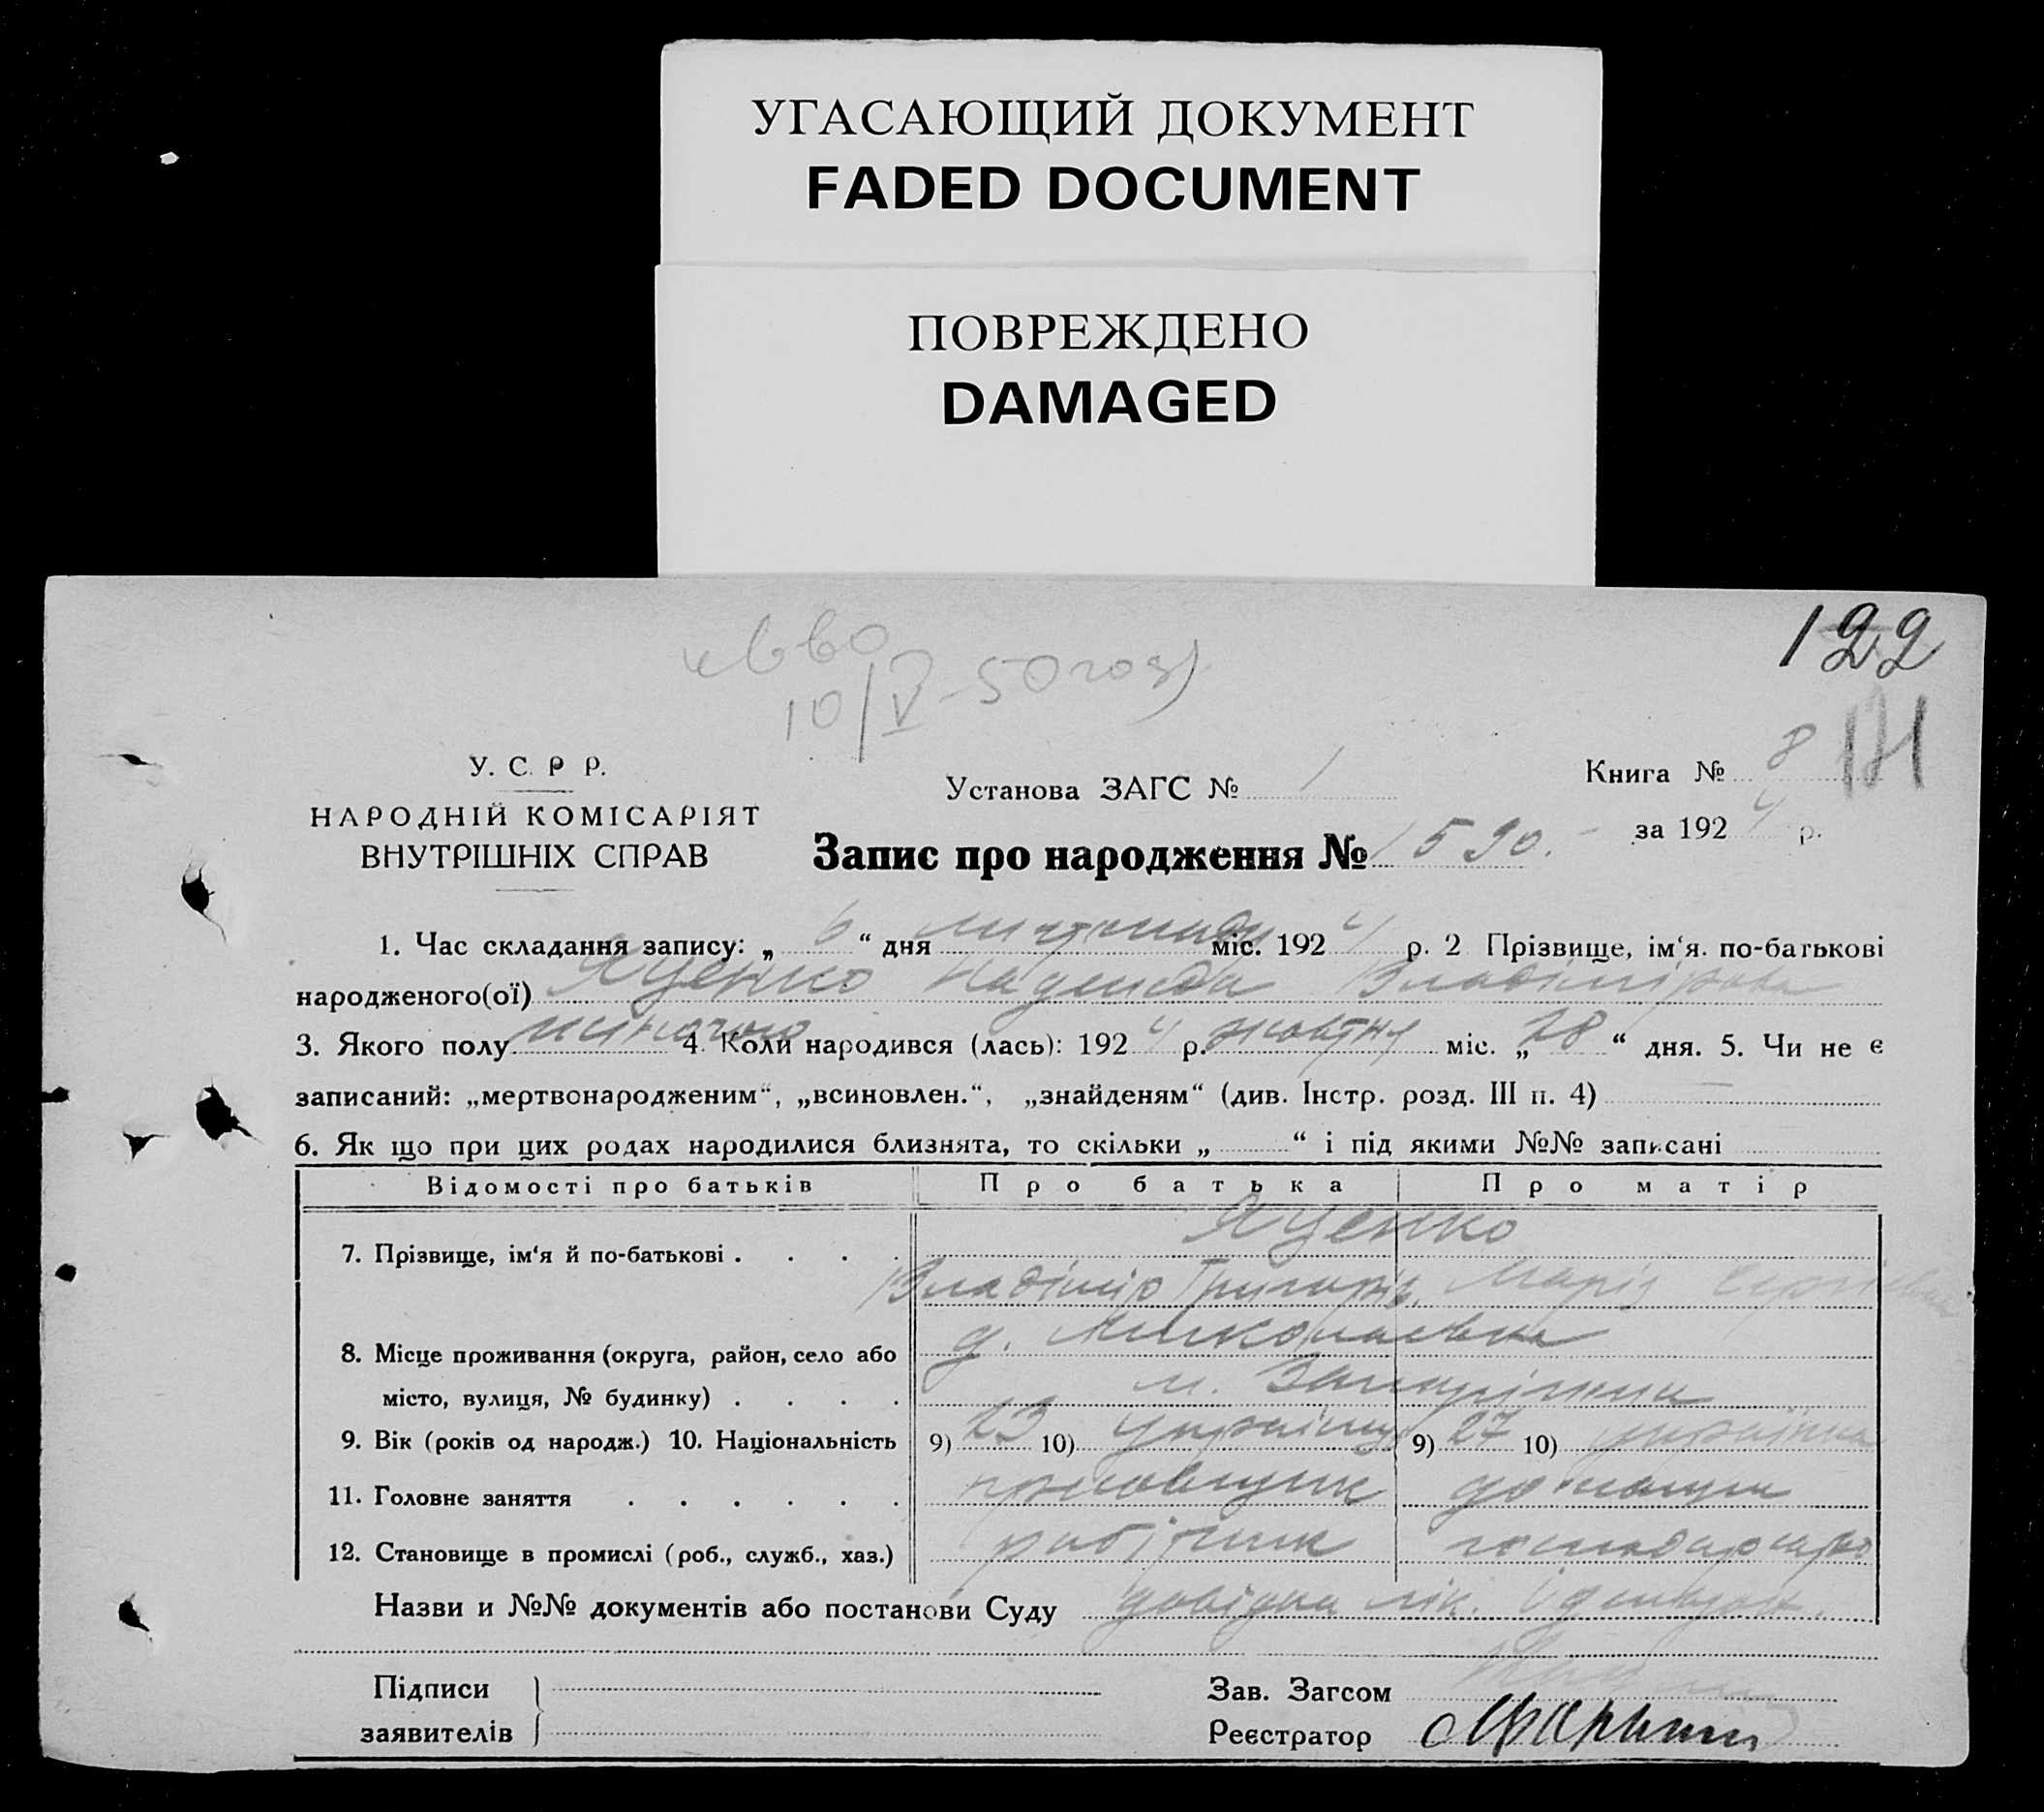 УГАСАЮЩИЙ ДОКУМЕНТ
FADED DOCUMENT
ПОВРЕЖДЕНО
DAMAGED
122
10/V-50
121
У. С. Р Р.
НАРОДНІЙ КОМІСАРІЯТ
ВНУТРІШНІХ СПРАВ
Установа ЗАГС № 1
Книга № 8
за 1924 р.
Запис про народження № 1590.
1. Час складання запису: „ 6 “ дня листопаду міс. 1924 р. 2 Прізвище, ім‘я. по-батькові
народженого(ої) Яценко Надежда Владімірова
3. Якого полу жіночого 4. Коли народився (лась): 1924 р. жовтня міс. „ 28 “ дня. 5. Чи не є
записаний: „мертвонародженим“, „всиновлен.“, „знайденям“ (див. Інстр. розд. III п. 4) —
6. Як що при цих родах народилися близнята, то скільки „ “ і під якими №№ записані
Відомості про батьків Про батька Про матір
7. Прізвище, ім‘я й по-батькові . . . . Яценко
Владімір Григорів. Марія Сергіївна
8. Місце проживання (округа, район, село або
місто, вулиця, № будинку) . . . .
м. Запоріжжя
9. Вік (років од народж.) 10. Національність 9) 23 10) українець 9) 27 10) українка
11. Головне заняття . . . . . . домашнє
12. Становище в промислі (роб., служб., хаз.) робітник господарство
Назви и №№ документів або постанови Суду довідка лік.
Підписи
заявителів
Зав. Загсом
Реєстратор